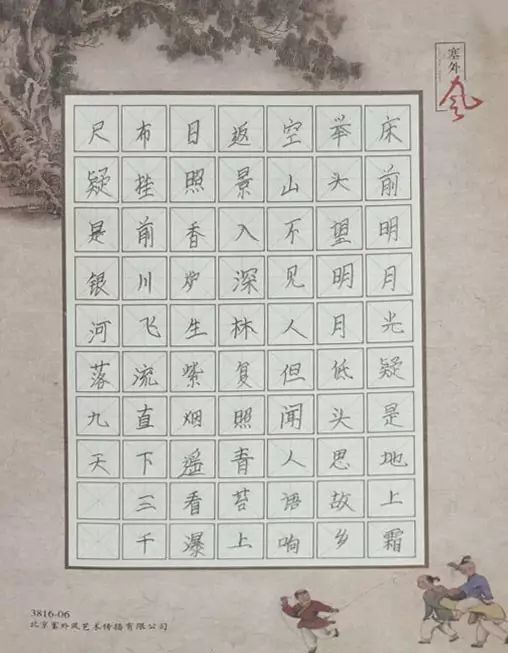 塞外风
床前明月光疑是地上霜
举头望明月低头思故乡
空山不见人但闻人语响
返景入深林复照青苔上
日照香炉生紫烟遥看瀑
布挂前川飞流直下三千
尺疑是银河落九天
3816-06
北京塞外风艺术传播有限公司